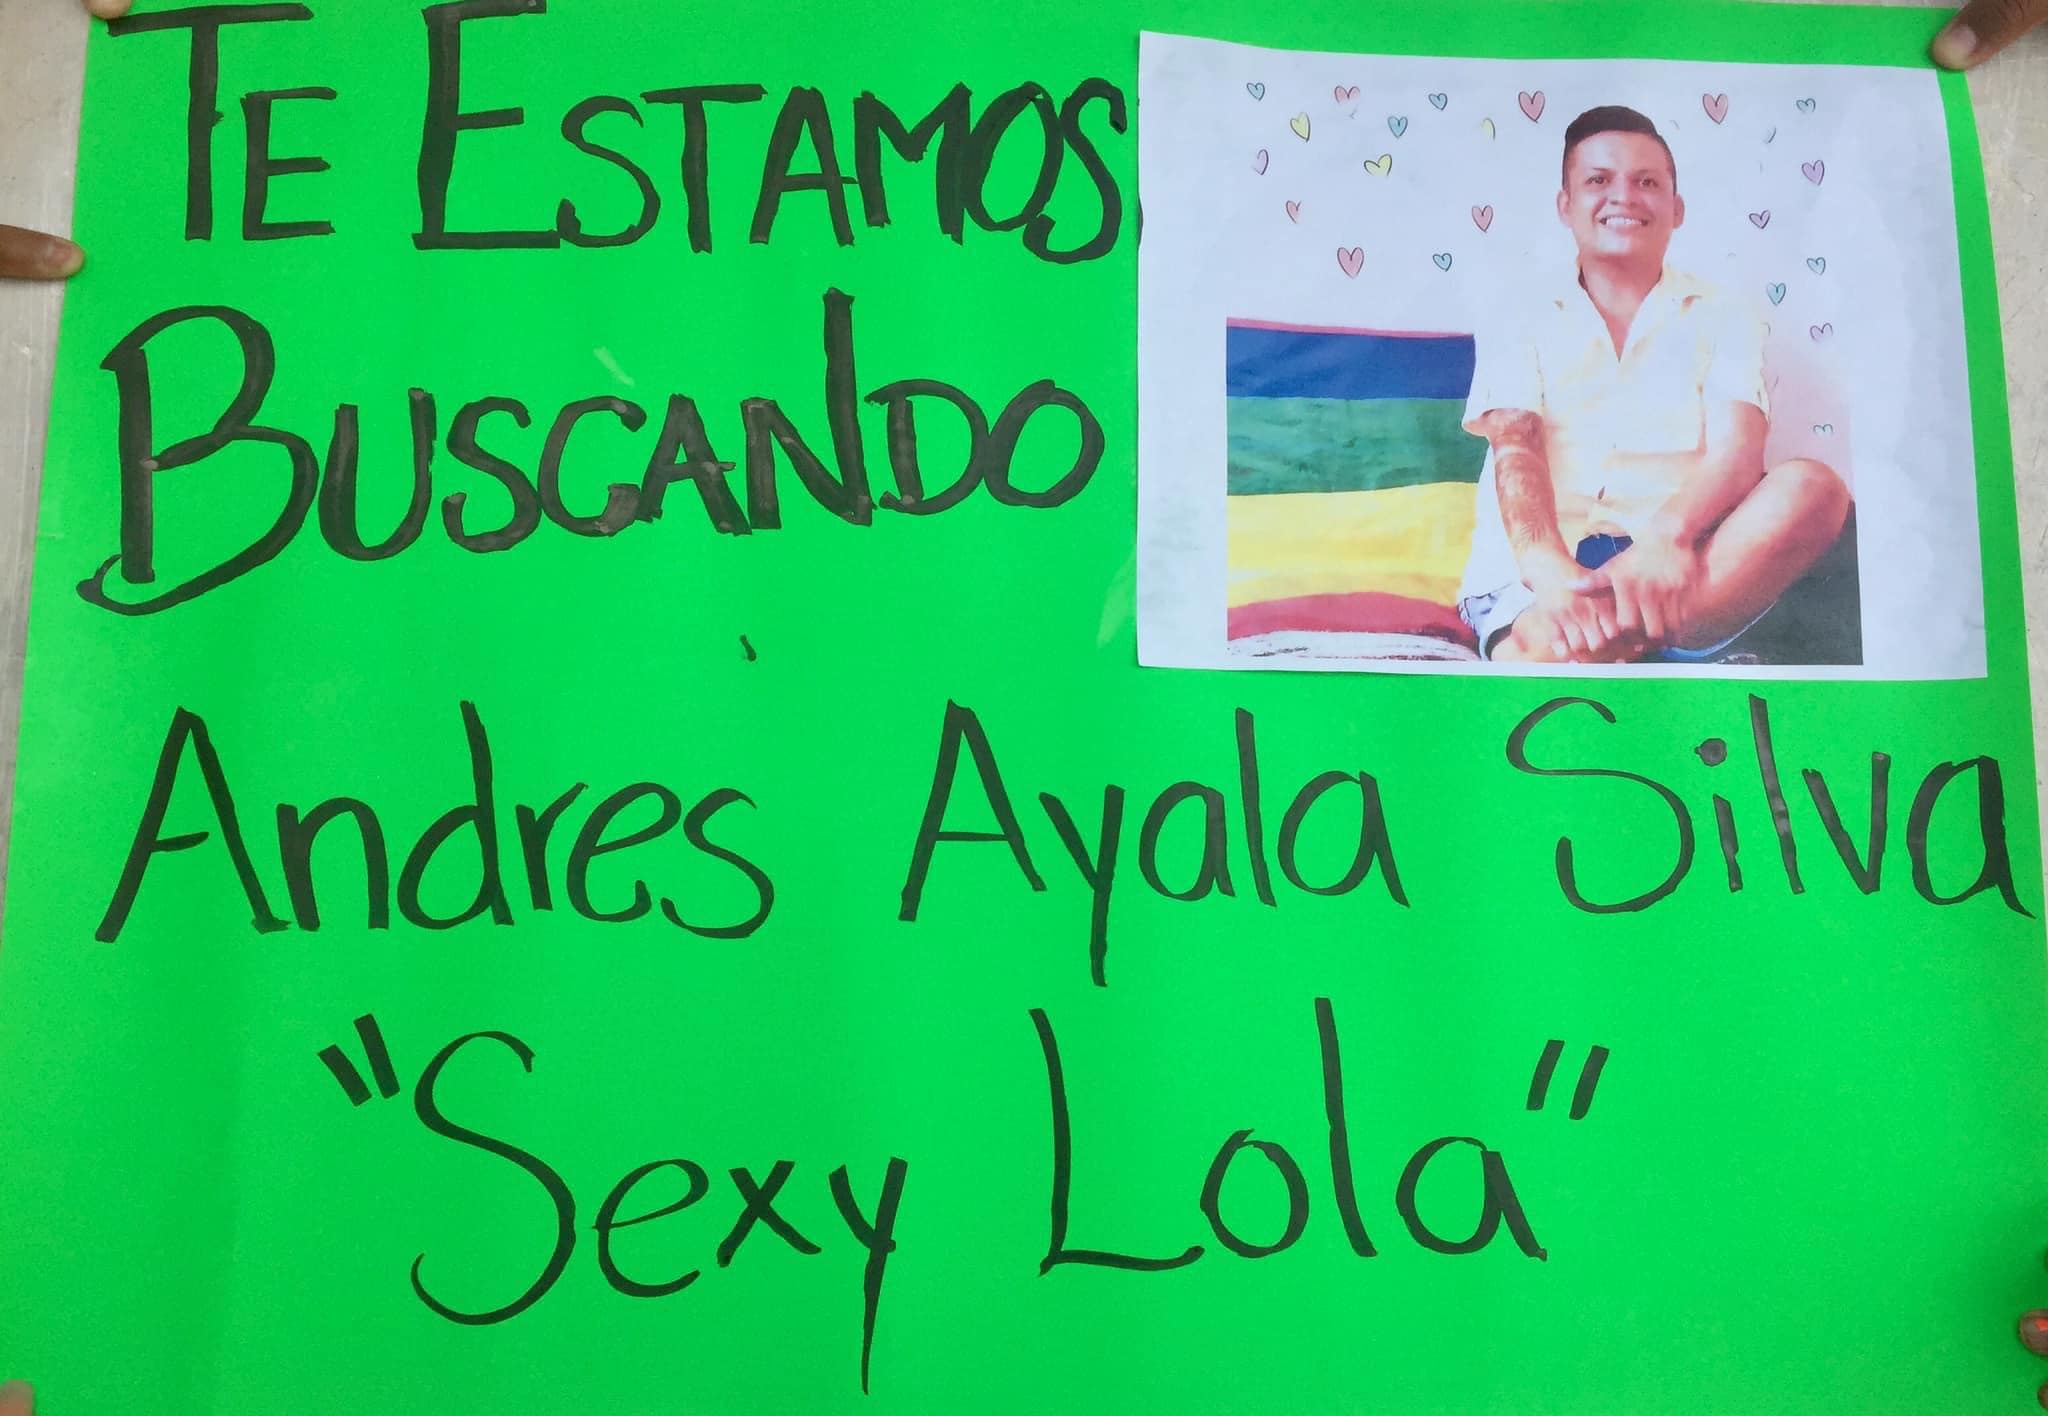 TE ESTAMOS
BUSCANDO
Andres Ayala Silva
"Sexy Lola"